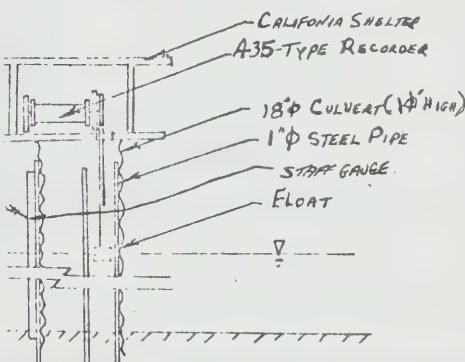 CALIFONIA SHELTER
A35-TYPE RECORDER
18"φ CULVERT (1φ' HIGH)
1"φ STEEL PIPE
STAFF GAUGE
FLOAT